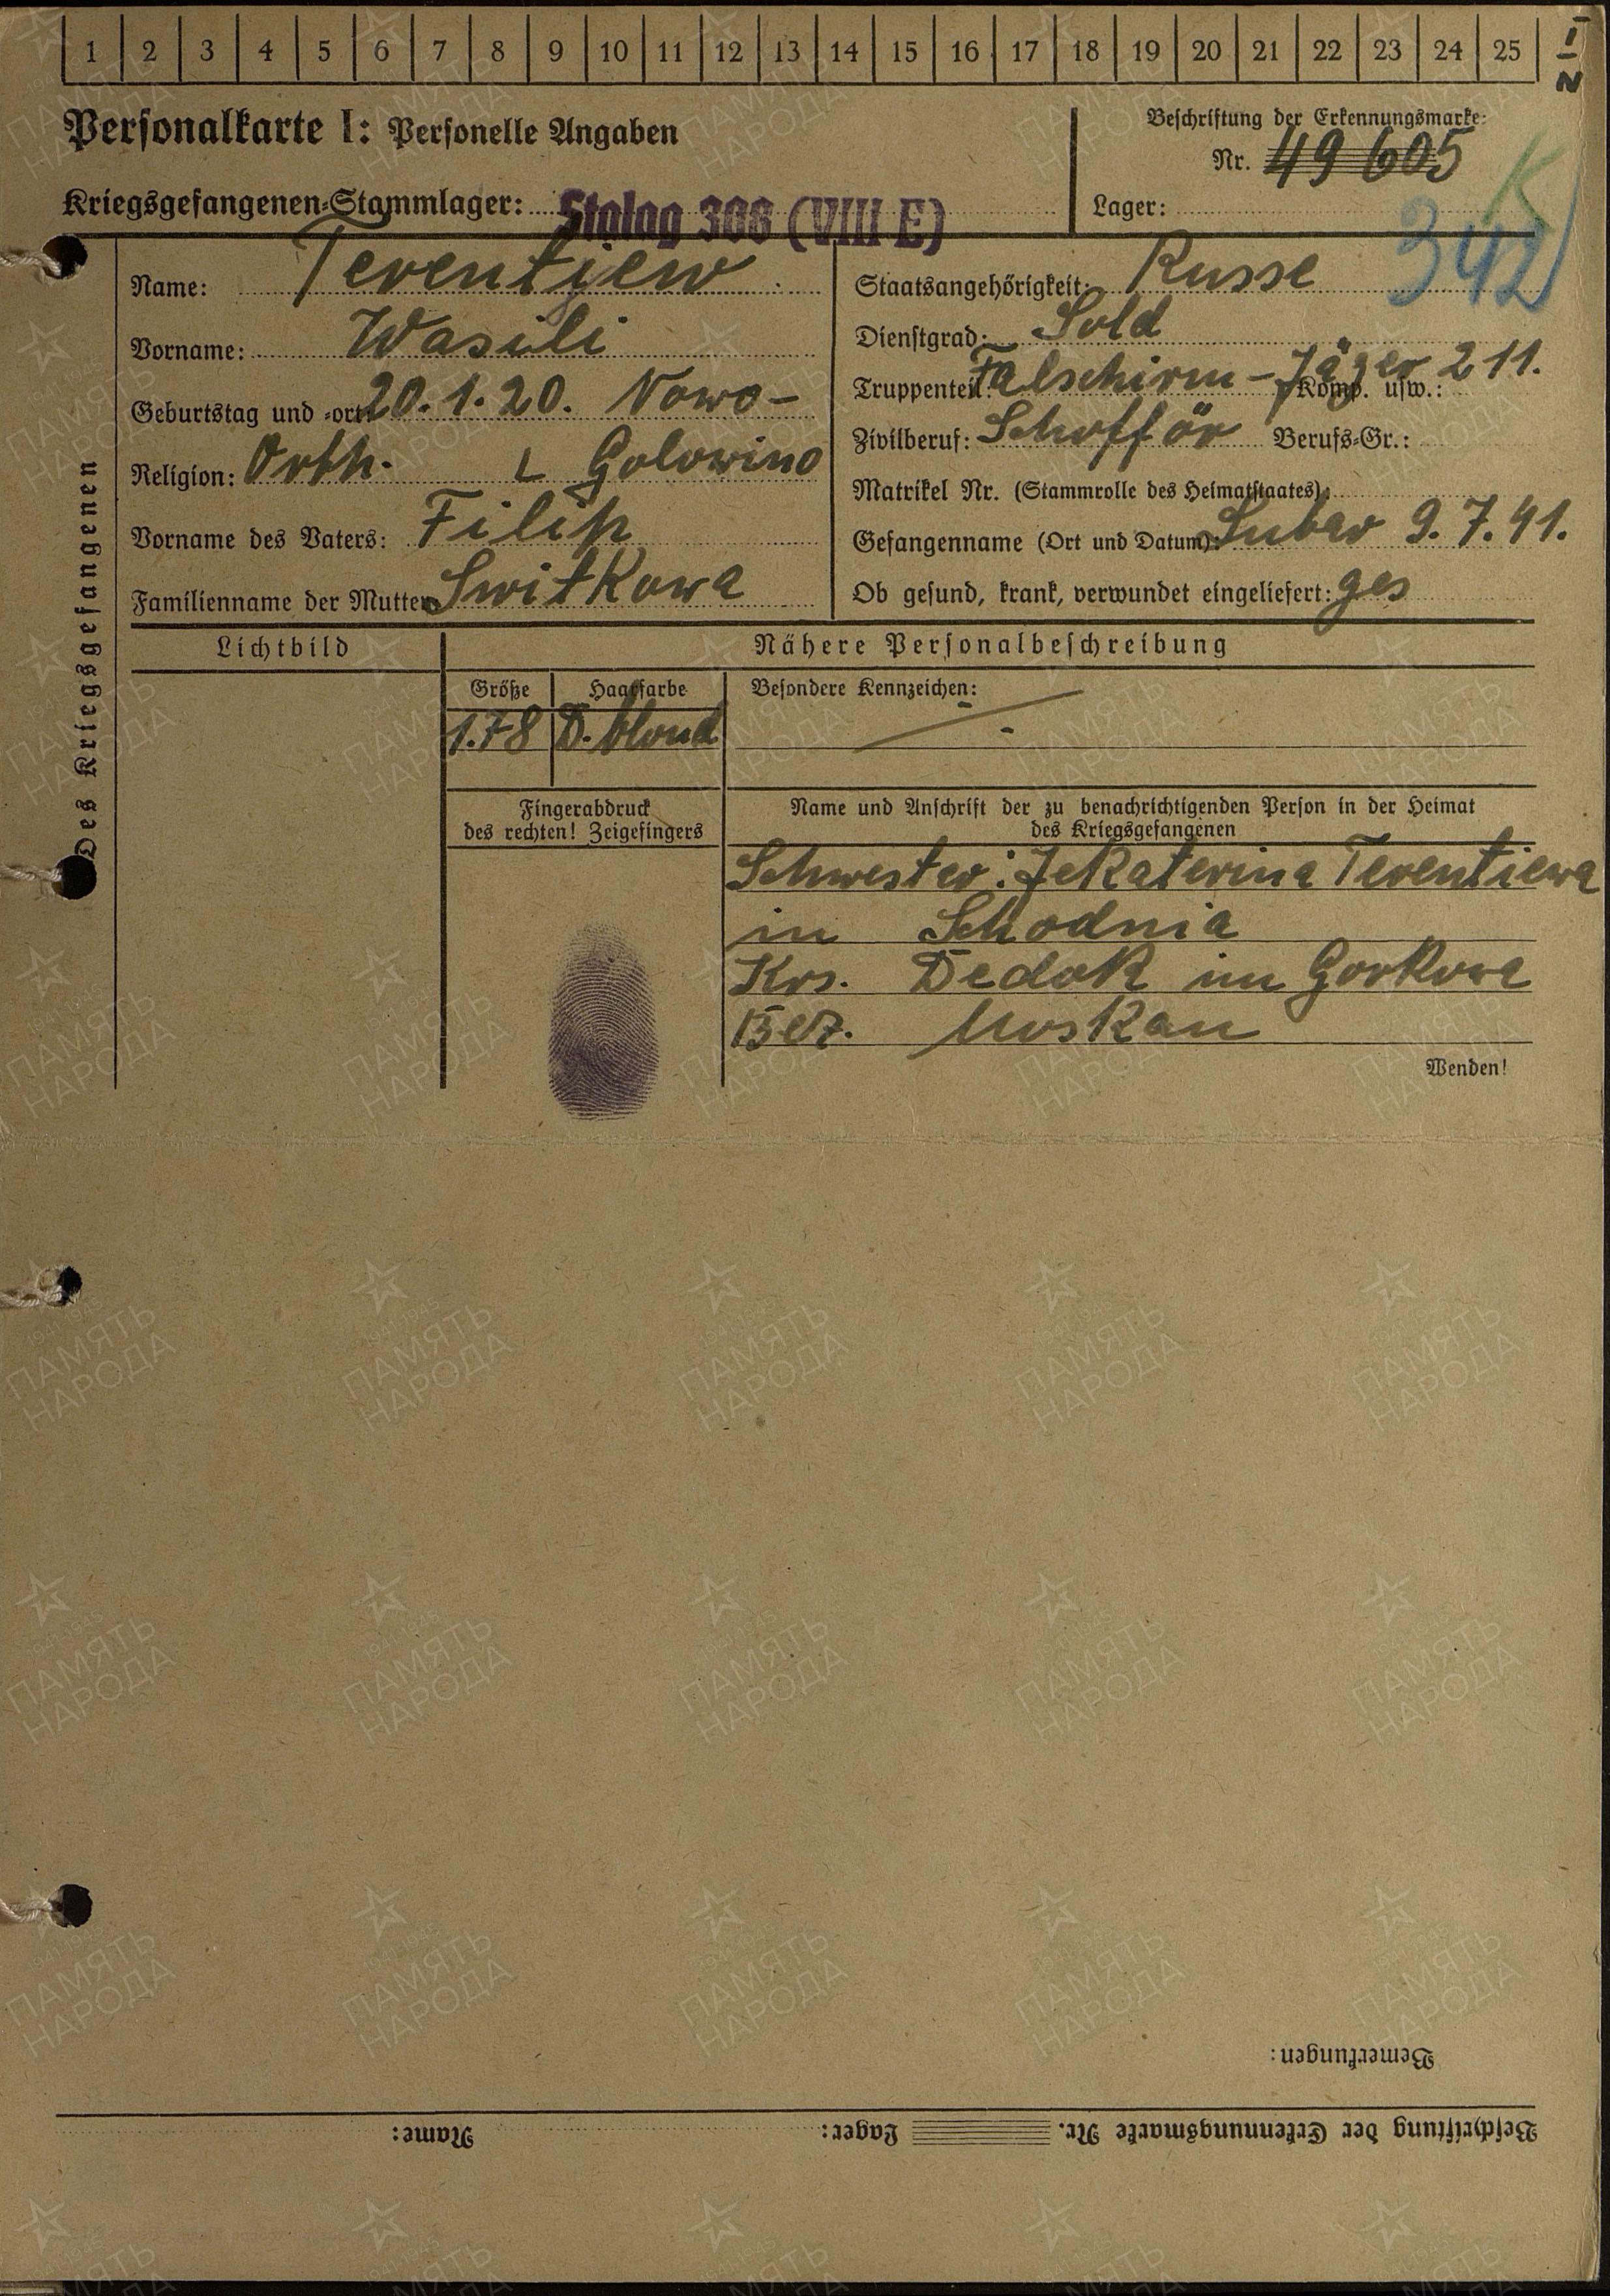 1 2 3 4 5 6 7 8 9 10 11 12 13 14 15 16 17 18 19 20 21 22 23 24 25
Personalkarte I: Personelle Angaben
Beschriftung der Erkennungsmarke:
Nr. 49 605
Kriegsgefangenen-Stammlager: Stalag 308 (VIII E)
Lager:
342
K
Des Kriegsgefangenen
Name: Terentijew
Vorname: Wasili
Geburtstag und -ort: 20.1.20. Nowo-
Religion: Orth. Golowino
Vorname des Vaters: Filip
Familienname der Mutter: Switkowa
Staatsangehörigkeit: Russe
Dienstgrad: Sold
Truppenteil: Falschirm-Jäger 211. Komp. usw.:
Zivilberuf: Schofför Berufs-Gr.:
Matrikel Nr. (Stammrolle des Heimatstaates):
Gefangenname (Ort und Datum): Lubar 9.7.41.
Ob gesund, krank, verwundet eingeliefert: ges
Lichtbild
Nähere Personalbeschreibung
Größe Haarfarbe Besondere Kennzeichen:
1.78 D. blond
Fingerabdruck
des rechten! Zeigefingers
Name und Anschrift der zu benachrichtigenden Person in der Heimat
des Kriegsgefangenen
Schwester: Jekaterina Terentiewa
in Schodnia
Krs. Dedok im Gorkowa
Bez. Moskau
Wenden!
Bemerkungen:
Beschriftung der Erkennungsmarke Nr. Lager: Name:
ПАМЯТЬ
НАРОДА